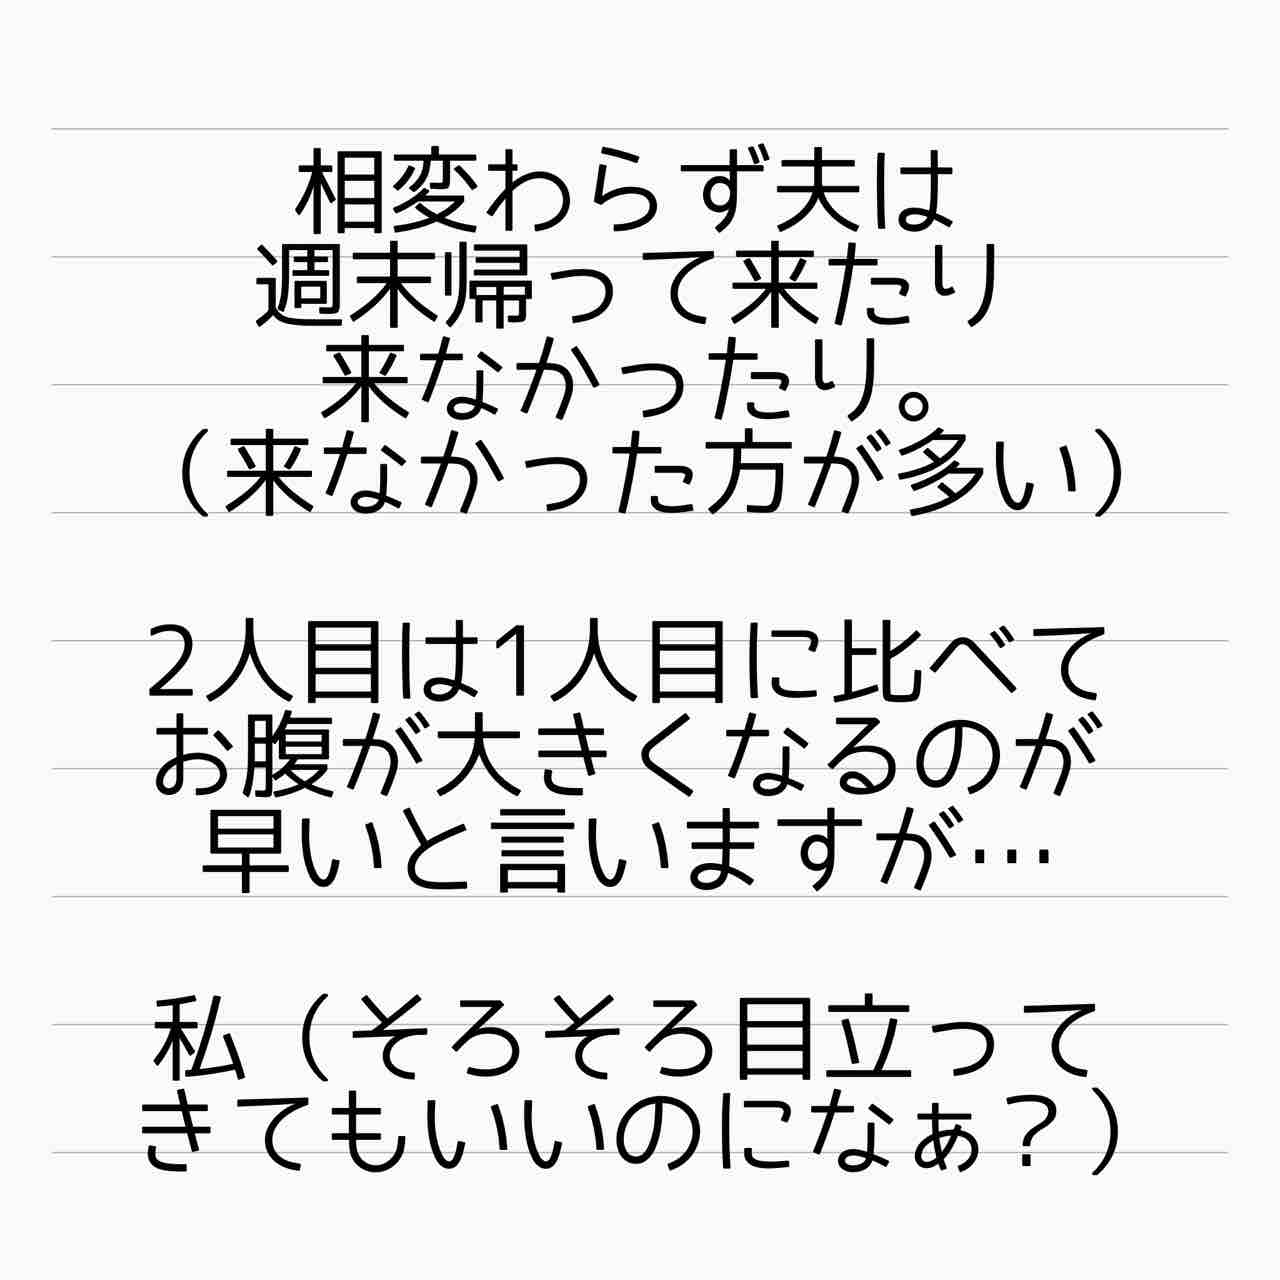 相変わらず夫は
週末帰って来たり
来なかったり。
（来なかった方が多い）
2人目は1人目に比べて
お腹が大きくなるのが
早いと言いますが…
私（そろそろ目立って
きてもいいのになぁ？）